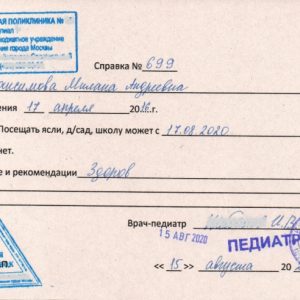 АЯ ПОЛИКЛИНИКА №
Справка № 699
аксимова Милана Андреевна
ения 17 апреля 2016 г.
Посещать ясли, д/сад, школу может с 17.08.2020
е и рекомендации Здоров
Врач-педиатр
15 АВГ 2020
ПЕДИАТР
« 15 » августа 20